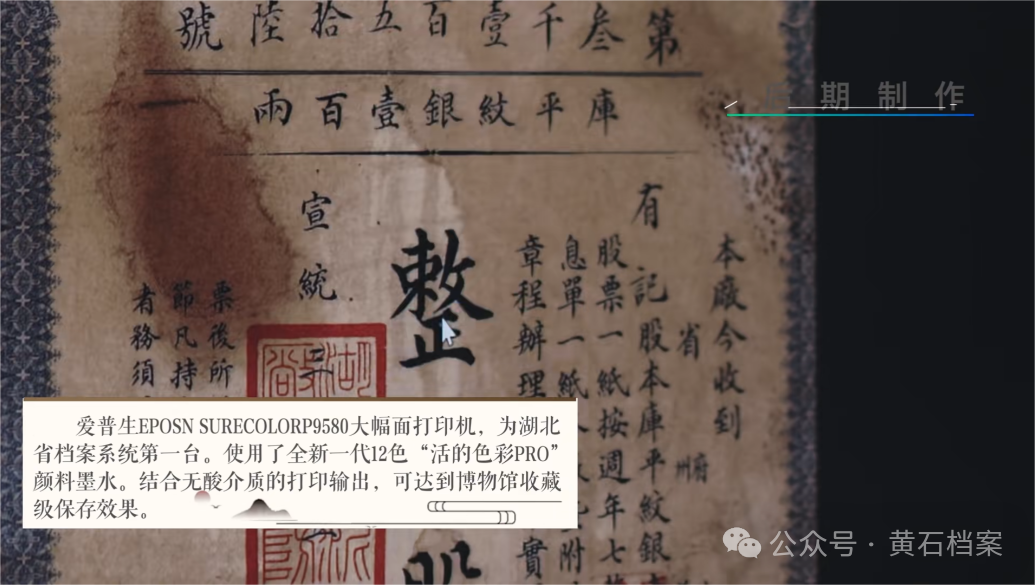 第叁千壹百五拾陸號
庫平紋銀壹百兩
本廠今收到
省 府州
有 記股本庫平紋銀
股票一紙按週年七
息單一紙 附
章程辦理 實
整
股
宣統
票後所
節凡持
者務須
期制作
爱普生EPOSN SURECOLORP9580大幅面打印机，为湖北
省档案系统第一台。使用了全新一代12色“活的色彩PRO”
颜料墨水。结合无酸介质的打印输出，可达到博物馆收藏
级保存效果。
公众号·黄石档案